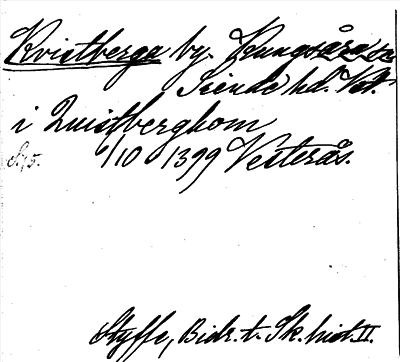 Kvistberga by. Kungsåra sn
Siende hd. Vstl.
i Quistberghom
S. 75. 6/10 1399 Vesterås.
Styffe, Bidr. t. Sk. hist. II.